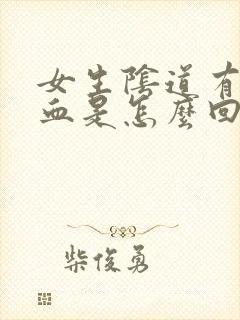 女生陰道有
血是怎麼回
柴俊勇